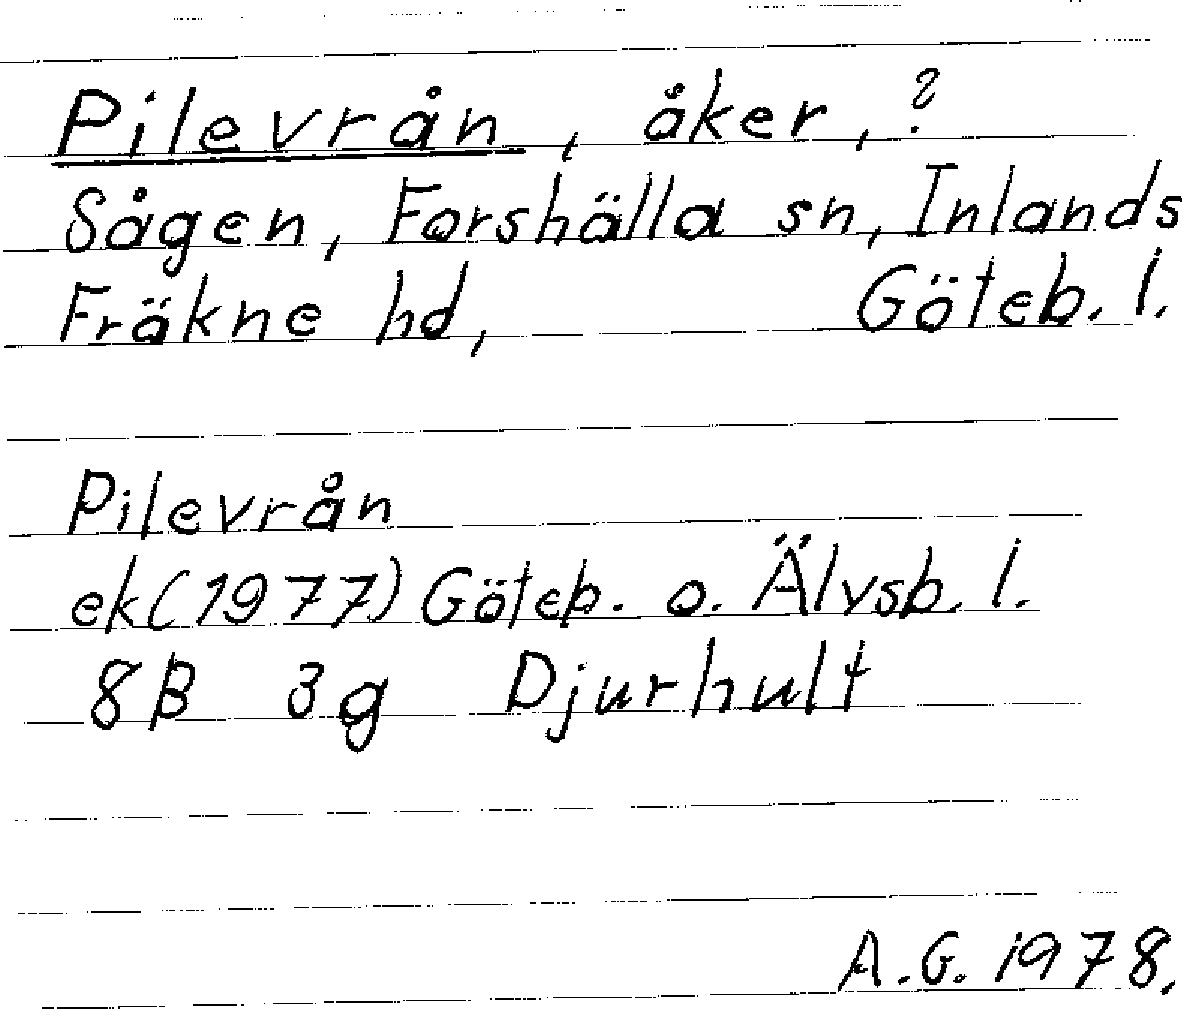 Pilevrån, åker, ?
Sågen, Forshälla sn, Inlands
Fräkne hd, Göteb. l.
Pilevrån
ek (1977) Göteb. o. Älvsb. l.
8B 3g Djurhult
A.G. 1978.